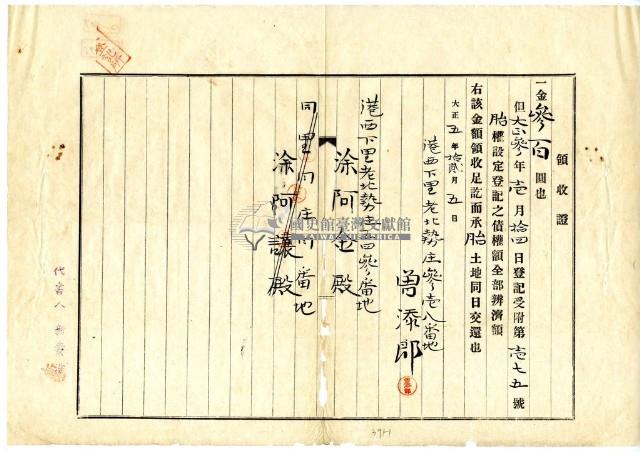 領收證
一金參百圓也
但大正參年壹月拾四日登記受附第壹七五號
胎權設定登記之債權額全部辨濟額
右該金額領收足訖而承胎土地同日交還也
大正五年拾貳月五日
港西下里老北勢庄參壹八番地
曾添郎
港西下里老北勢庄四參番地
涂阿 殿
同里同庄同番地
涂阿讓殿
代書人
國史館臺灣文獻館
TAIWAN HISTORICA